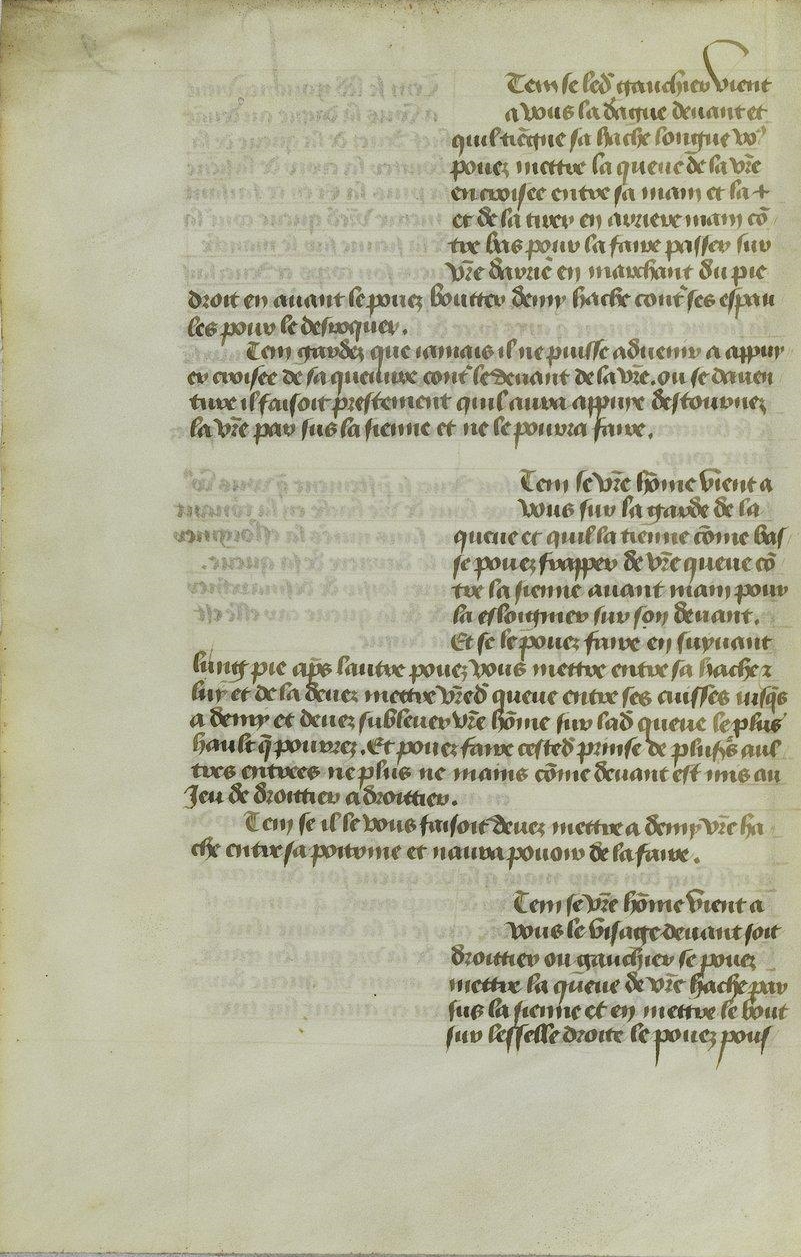 Tem se led̄ gauchier vient
a vous la dague deuant et
quil tiēgne sa hache longue vo⁹
pouez mettre la queue de la vr̄e
en croisee entre sa main et la +
et de la tirer en arriere main cō
tre bas pour la faire passer sur
vr̄e darriē en marchant du pie
droit en auant le pouez boutter demy hache cont̄ ses espau
les pour le desroquer.
Tem gardez que iamais il ne puisse aduenir a appuy
er croisee de sa queuwe cont̄ le deuant de la vr̄e. ou se dauen
ture il faisoit prestement quil aura appuye destournez
la vr̄e par sus la sienne et ne le pourra faire.
Tem se vr̄e hōme vient a
vous sur la garde de la
queue et quil la tienne cōme bas
se pouez frapper de vr̄e queue cō
tre la sienne auant main pour
la esloignier sur son deuant.
Et se le pouez faire en suyuant
lung pie ap̄s lautre pouez vous mettre entre sa hache ⁊
luy et de la deuez mettre vr̄ed̄ queue entre ses cuisses iusq̄s
a demy et deuez subleuer vr̄e hōme sur lad̄ queue le plus
hault q̄ pourrez. Et pouez faire cested̄ prinse de plus̄s aul
tres entrees ne plus ne mains cōme deuant est mis au
Jeu de droittier a droittier.
Tem se il le vous faisoit deuez mettre a demy vr̄e ha
che entre sa poitrine et naura pouoir de la faire.
Tem se vr̄e hōme vient a
vous le visage deuant soit
droittier ou gauchier se pouez
mettre la queue de vr̄e hache par
sus la sienne et en mettre le bout
sur lesselle droite le pouez pous